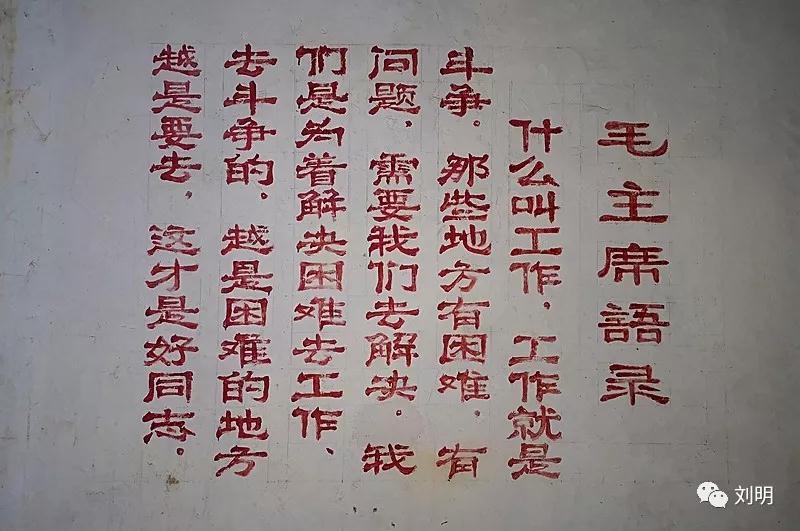 毛主席語录
什么叫工作，工作就是
斗争。那些地方有困难，有
问题，需要我们去解决。我
们是为着解决困难去工作、
去斗争的，越是困难的地方
越是要去，这才是好同志。
刘明